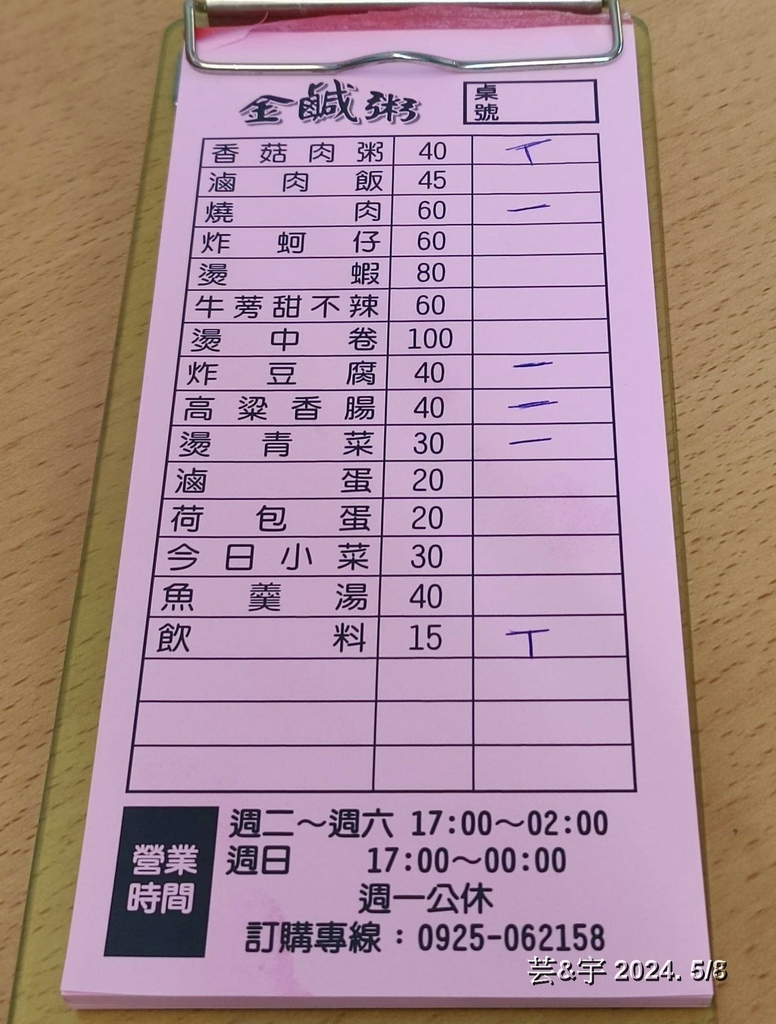 金鹹粥
桌號
香菇肉粥 40 丅
滷肉飯 45
燒肉 60 一
炸蚵仔 60
燙蝦 80
牛蒡甜不辣 60
燙中卷 100
炸豆腐 40 一
高粱香腸 40 一
燙青菜 30 一
滷蛋 20
荷包蛋 20
今日小菜 30
魚羹湯 40
飲料 15 丅
營業時間
週二～週六 17:00～02:00
週日 17:00～00:00
週一公休
訂購專線：0925-062158
芸&宇 2024. 5/8